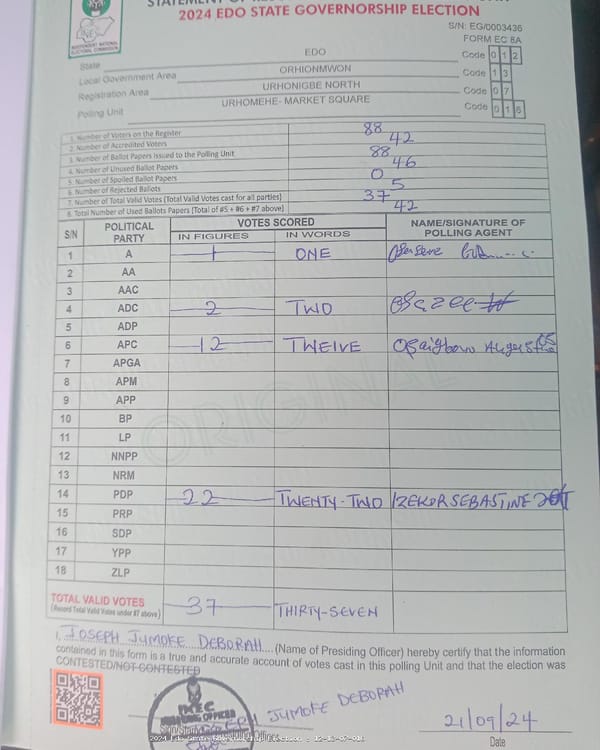 2024 EDO STATE GOVERNORSHIP ELECTION
S/N: EG/0003436
FORM EC 8A
INDEPENDENT NATIONAL ELECTORAL COMMISSION
State EDO Code 0 1 2
Local Government Area ORHIONMWON Code 1 3
Registration Area URHONIGBE NORTH Code 0 7
Polling Unit URHOMEHE- MARKET SQUARE Code 0 1 6
1. Number of Voters on the Register 88
2. Number of Accredited Voters 42
3. Number of Ballot Papers Issued to the Polling Unit 88
4. Number of Unused Ballot Papers 46
5. Number of Spoiled Ballot Papers 0
6. Number of Rejected Ballots 5
7. Number of Total Valid Votes (Total Valid Votes cast for all parties) 37
8. Total Number of Used Ballots Papers (Total of #5 + #6 + #7 above) 42
S/N POLITICAL PARTY VOTES SCORED NAME/SIGNATURE OF POLLING AGENT
IN FIGURES IN WORDS
1 A 1 ONE
2 AA
3 AAC
4 ADC 2 TWO
5 ADP
6 APC 12 TWEIVE
7 APGA
8 APM
9 APP
10 BP
11 LP
12 NNPP
13 NRM
14 PDP 22 TWENTY-TWO IZEKOR SEBASTINE
15 PRP
16 SDP
17 YPP
18 ZLP
ORIGINAL
TOTAL VALID VOTES 37 THIRTY-SEVEN
(Record Total Valid Votes under #7 above)
I, JOSEPH JUMOKE DEBORAH (Name of Presiding Officer) hereby certify that the information
contained in this form is a true and accurate account of votes cast in this polling Unit and that the election was
CONTESTED/NOT CONTESTED
JOSEPH JUMOKE DEBORAH
21/09/24
Date